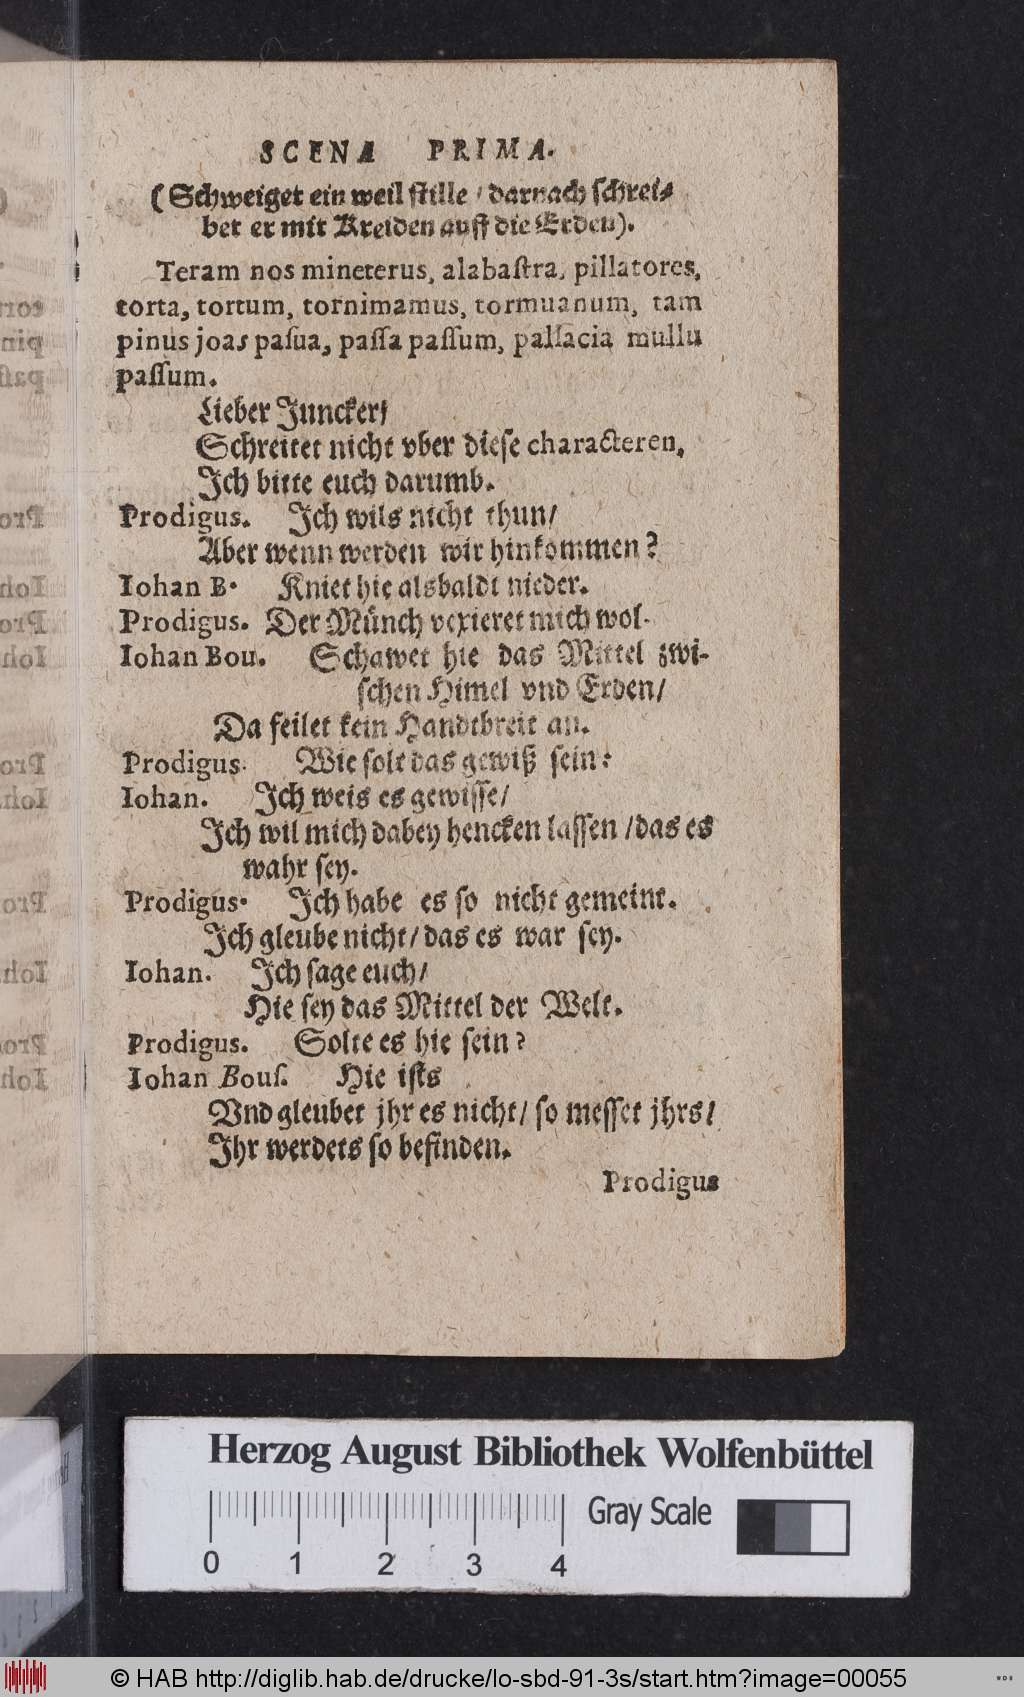 SCENA PRIMA.
(Schweiget ein weil stille / darnach schrei-
bet er mit Kreiden auff die Erden).
Teram nos mineterus, alabaſtra, pillatores,
torta, tortum, tornimamus, tormuanum, tam
pinus joas paſua, paſſa paſſum, pallacia mullu
paſſum.
Lieber Juncker/
Schreitet nicht vber dieſe characteren,
Ich bitte euch darumb.
Prodigus. Ich wils nicht thun/
Aber wenn werden wir hinkommen?
Iohan B. Kniet hie alsbaldt nieder.
Prodigus. Der Münch vexieret mich wol.
Iohan Bou. Schawet hie das Mittel zwi-
ſchen Himel vnd Erden/
Da feilet kein Handtbreit an.
Prodigus. Wie ſolt das gewiß ſein?
Iohan. Ich weis es gewiſſe/
Ich wil mich dabey hencken laſſen /das es
wahr ſey.
Prodigus. Ich habe es ſo nicht gemeint.
Ich gleube nicht/ das es war ſey.
Iohan. Ich ſage euch/
Hie ſey das Mittel der Welt.
Prodigus. Solte es hie ſein?
Iohan Bouſ. Hie iſts
Vnd gleubet jhr es nicht/ ſo meſſet jhrs/
Ihr werdets ſo befinden.
Prodigus
Herzog August Bibliothek Wolfenbüttel
Gray Scale
0 1 2 3 4
© HAB http://diglib.hab.de/drucke/lo-sbd-91-3s/start.htm?image=00055